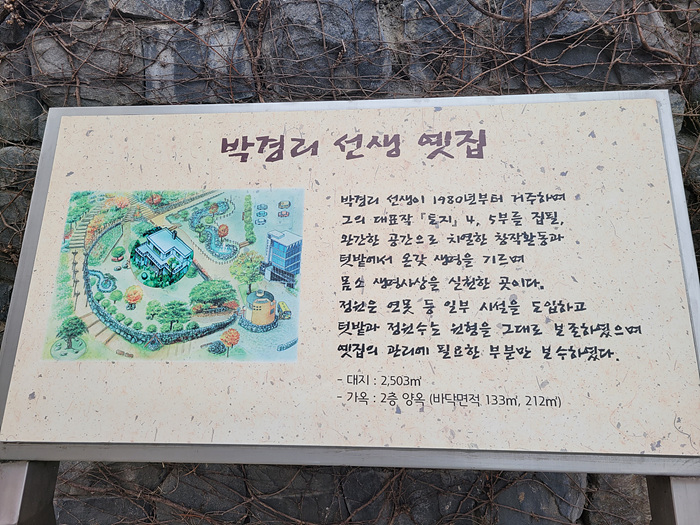 박경리 선생 옛집
박경리 선생이 1980년부터 거주하며
그의 대표작 「토지」 4, 5부를 집필,
완간한 공간으로 치열한 창작활동과
텃밭에서 온갖 생명을 기르며
몸소 생명사상을 실천한 곳이다.
정원은 연못 등 일부 시설을 도입하고
텃밭과 정원수도 원형을 그대로 보존하였으며
옛집의 관리에 필요한 부분만 보수하였다.
- 대지 : 2,503㎡
- 가옥 : 2층 양옥 (바닥면적 133㎡, 212㎡)